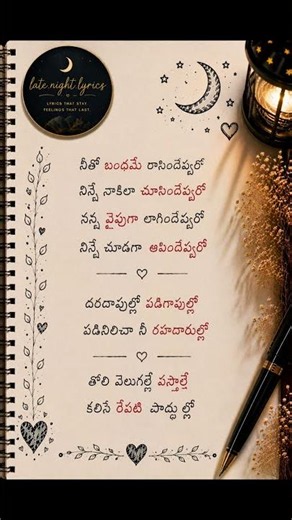 late night lyrics
LYRICS THAT STAY
FEELINGS THAT LAST.
నీతో బంధమే రాసిందెప్వరో
నిన్నే నాకిలా చూసిందేప్వరో
నన్న వైపుగా లాగిందేప్వరో
నిన్నే చూడగా ఆపిందేప్వరో
దరదాపుల్లో పడిగాపుల్లో
పడినిలిచా నీ రహదారుల్లో
తోలి వెలుగల్లే పస్తాల్తే
కలిసే రేపటి పొద్దు ల్లో